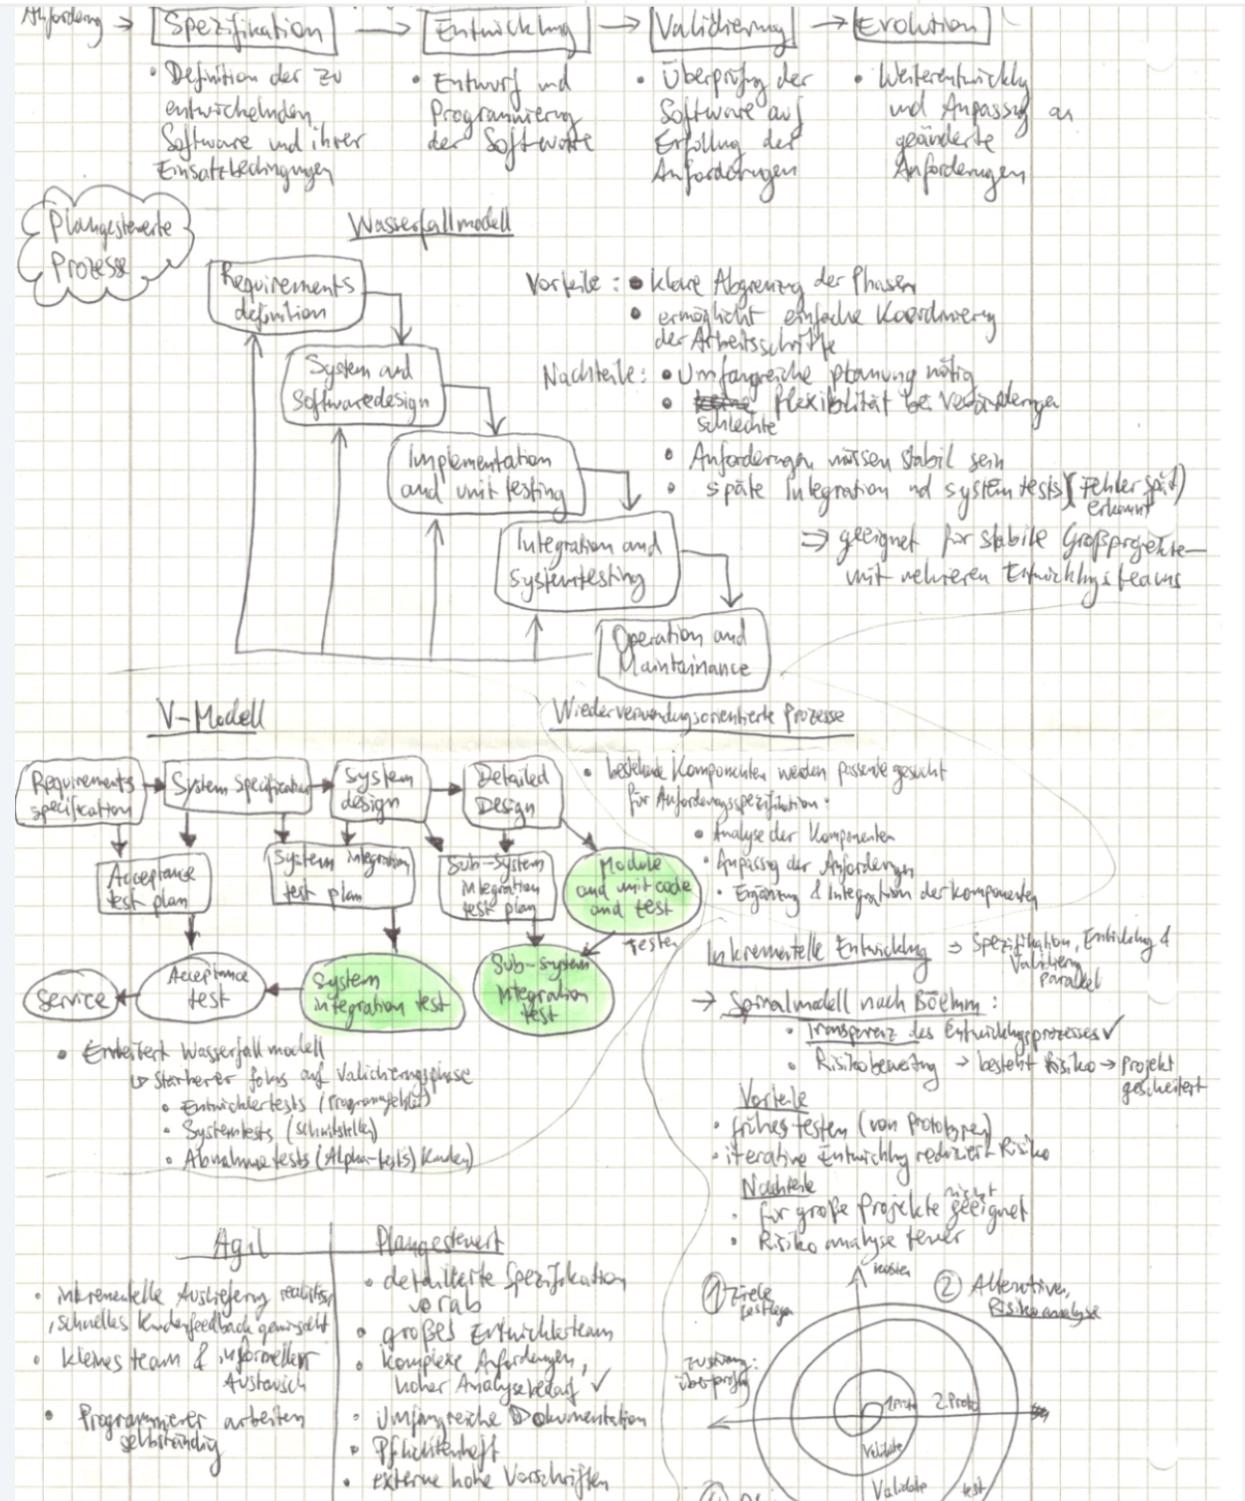 Anforderung → Spezifikation → Entwicklung → Validierung → Evolution
• Definition der zu
entwickelnden
Software und ihrer
Einsatzbedingungen
• Entwurf und
Programmierung
der Software
• Überprüfung der
Software auf
Erfüllung der
Anforderungen
• Weiterentwicklg
und Anpassg an
geänderte
Anforderungen
Plangesteuerte
Prozesse
Wasserfallmodell
Requirements
definition
System and
Softwaredesign
Implementation
and unit testing
Integration and
systemtesting
Operation and
Maintainance
Vorteile: • klare Abgrenzg der Phasen
• ermöglicht einfache Koordinierung
der Arbeitsschritte
Nachteile: • Umfangreiche planung nötig
• keine flexibilität bei Veränderungen
schlechte
• Anforderungen müssen stabil sein
• späte Integration und systemtests (Fehler spät)
erkannt
⇒ geeignet für stabile Großprojekte
mit mehreren Entwicklungsteams
V-Modell
Requirements
specification
System Specification
System
design
Detailed
Design
Acceptance
test plan
System integration
test plan
Sub-system
integration
test plan
Module
and unit code
and test
Testen
Service
Acceptance
test
System
integration test
Sub-system
Integration
test
• Erweitert Wasserfallmodell
↳ Stärkerer fokus auf Validierungsphase
• Entwicklertests
• Systemtests (Schnittstellen)
• Abnahmetests (Alpha-tests) Kunden)
Wiederverwendungsorientierte Prozesse
• bestehende Komponenten werden passend gesucht
für Anforderungsspezifikation.
• Analyse der Komponenten
• Anpassg der Anforderungen
• Ergänzung & Integration der Komponenten
Inkrementelle Entwicklg ⇒ Spezifikation, Entwicklung &
Validierung
parallel
→ Spiralmodell nach Böehm:
• Transparenz des Entwicklungsprozesses ✓
• Risikobewertung → besteht Risiko → Projekt
gescheitert
Vorteile
• frühes testen (von Prototypen)
• iterative Entwicklung reduziert Risiko
Nachteile
nicht
• für große Projekte geeignet
• Risikoanalyse teuer
Agil
• inkrementelle Auslieferung
, schnelles Kundenfeedback gewünscht
• kleines team & informeller
Austausch
• Programmierer arbeiten
selbständig
Plangesteuert
• detaillierte Spezifikation
vorab
• großes Entwicklerteam
• komplexe Anforderungen,
hoher Analysebedarf ✓
• Umfangreiche Dokumentation
• Pflichtenheft
• externe hohe Vorschriften
① Ziele
festlegen
Kosten
② Alternativen,
Risikoanalyse
Zustimmung:
überprüfg
1.Proto
2.Proto
Validate
Validate
test